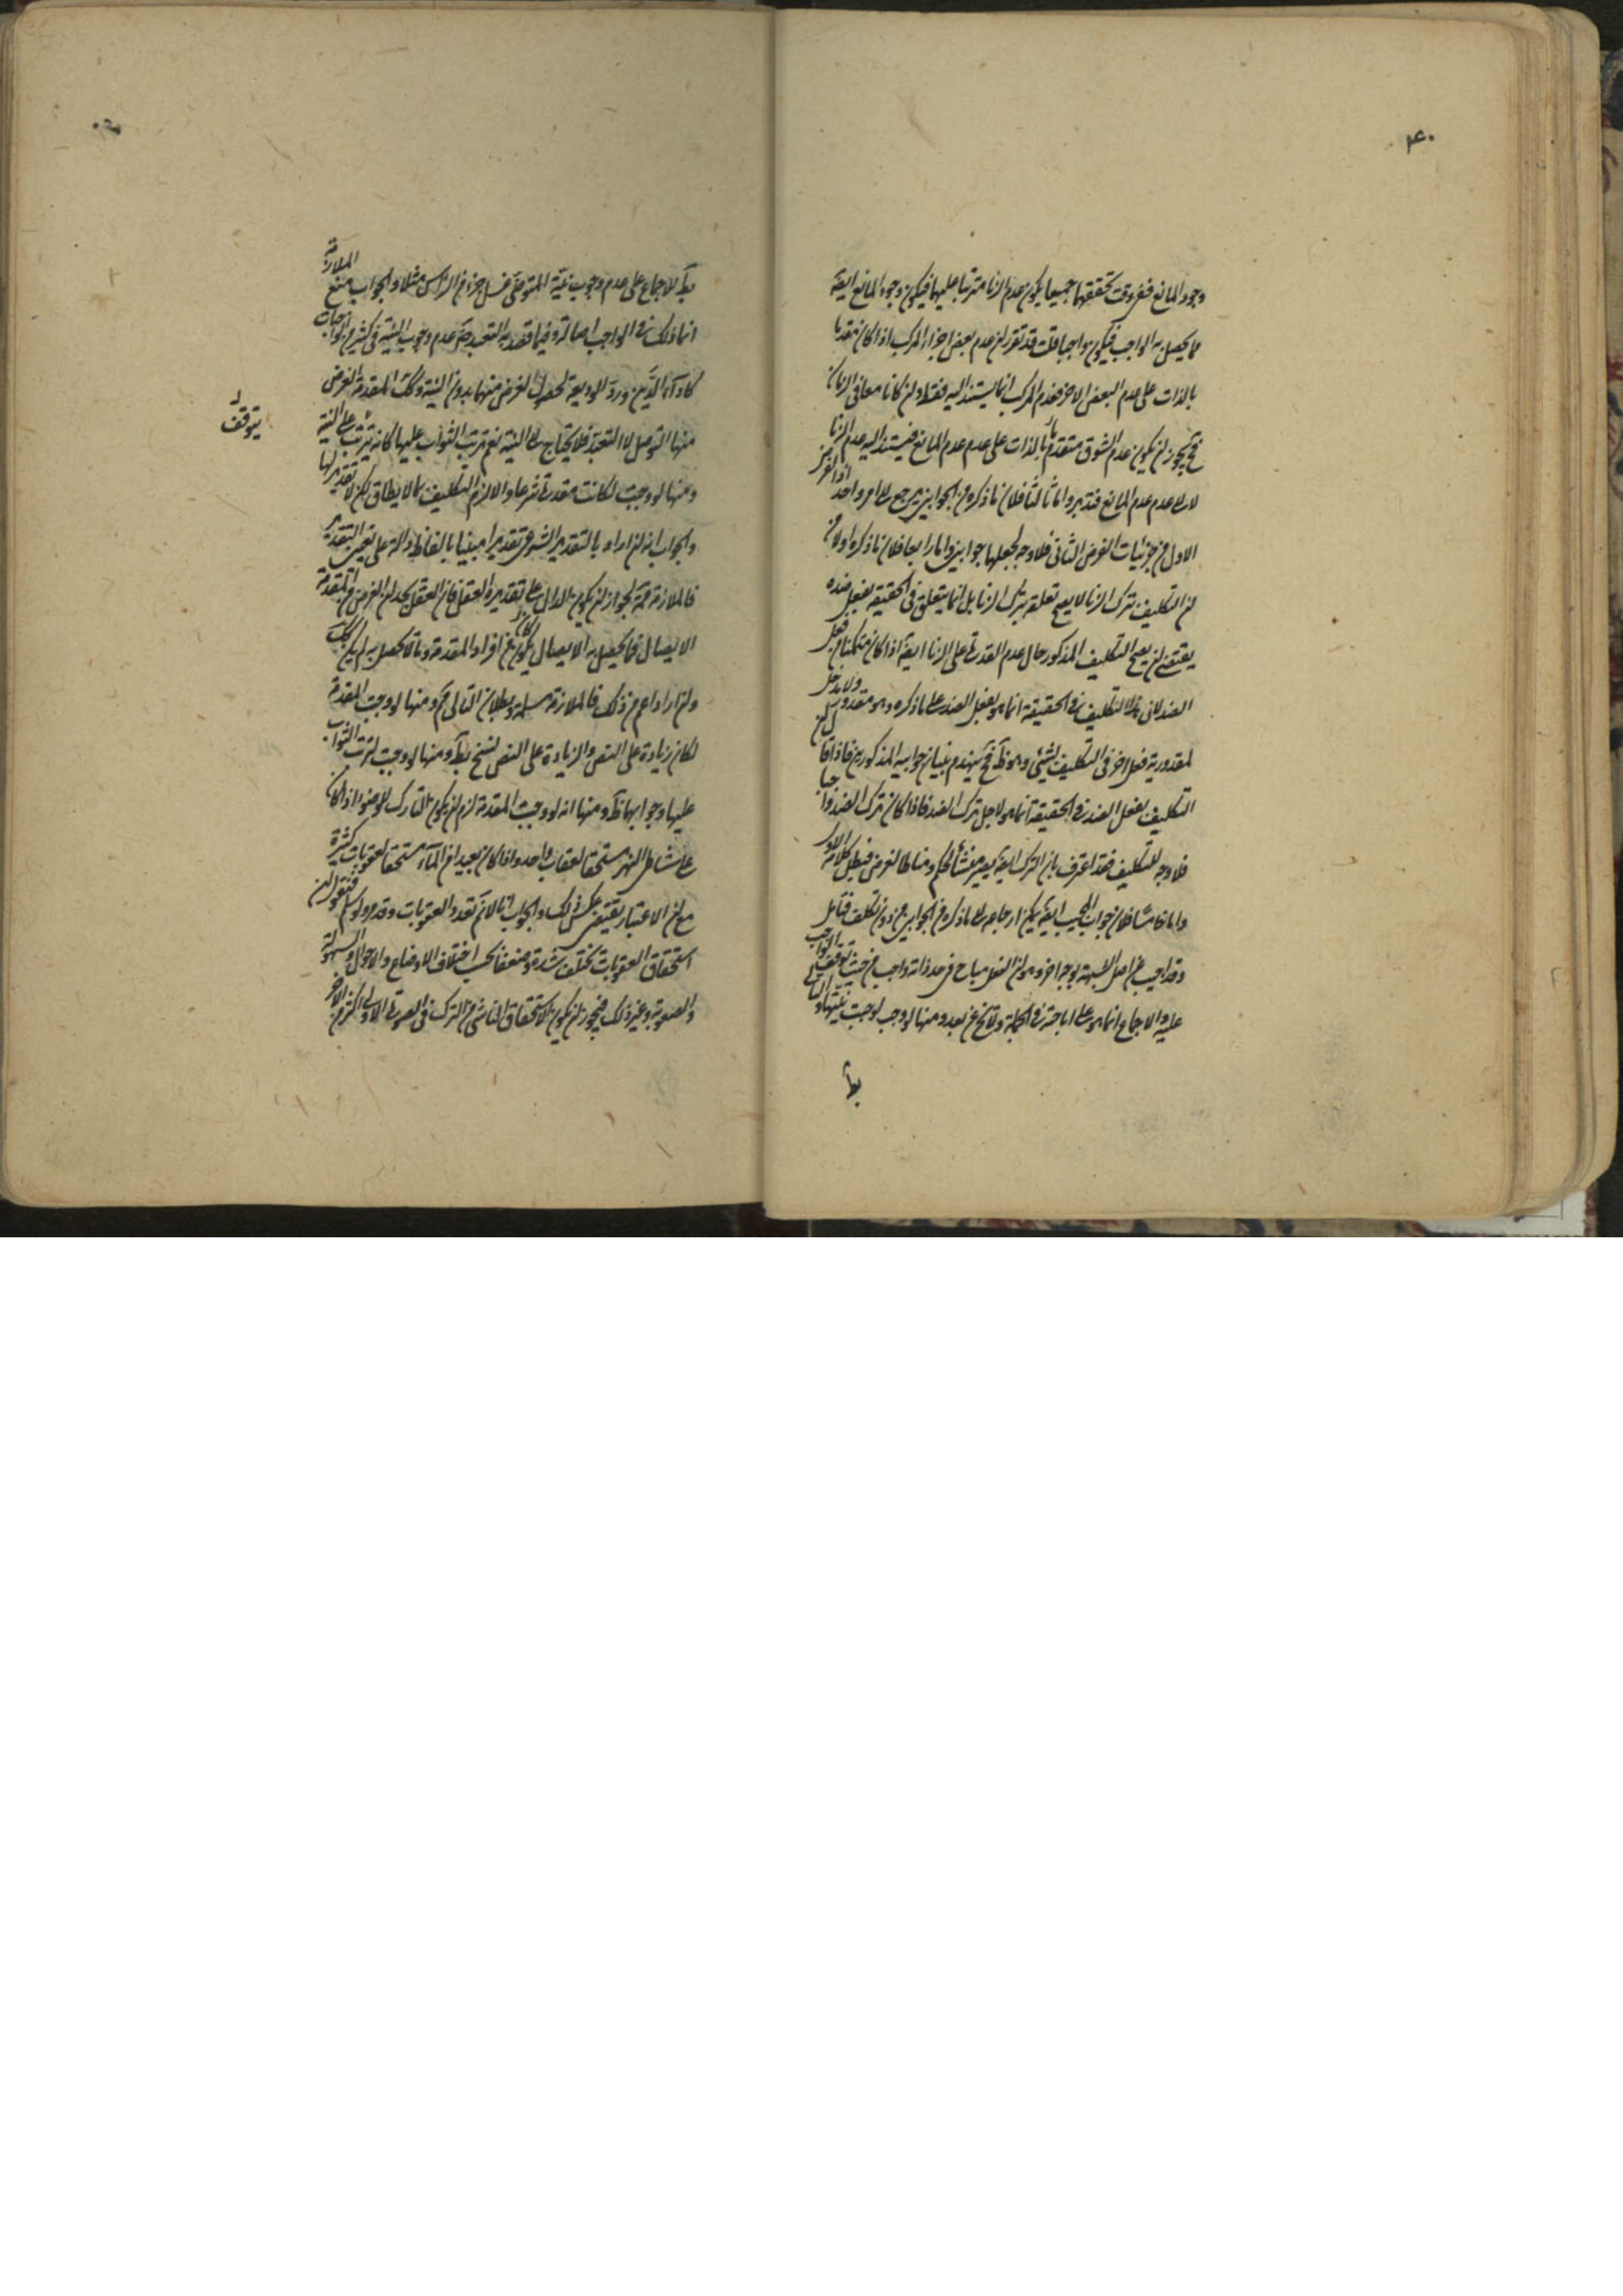 ۴۰
وجود المانع ففى وقت تحققهما جميعا يكون عدم الزنا مترتبا عليهما فيكون وجود المانع ايضا
مما يحصل به الواجب فيكون واجبا قلت قد تقرر ان عدم بعض اجزاء المركب اذا كان مقدما
بالذات على عدم البعض الاخر فعدم المركب انما يستند اليه فقط وان كانا معا فى الزمان
فح يجوز ان يكون عدم الشوق متقدما بالذات على عدم عدم المانع فيستند اليه عدم الزنا
لا الى عدم عدم المانع فتدبر واما ثالثا فلان ما ذكره من الجوابين يرجع الى امر واحد اذ الفرض
الاول من جزئيات الفرض الثانى فلا وجه لجعلهما جوابين واما رابعا فلان ما ذكره اولا من
ان التكليف بترك الزنا لا يصح تعلقه بترك الزنا بل انما يتعلق فى الحقيقة بفعل ضده
يقتضى ان يصح التكليف المذكور حال عدم القدرة على الزنا ايضا اذا كان متمكنا من فعل
الضد لان هذا التكليف فى الحقيقة انما هو بفعل الضد على ما ذكره وهو مقدور ولا مدخل
لمقدورية فعل اخر فى التكليف بشئ وهو ظ فح ينهدم بنيان جوابيه المذكورين فاذا قال ان
التكليف بفعل الضد فى الحقيقة انما هو لاجل ترك الضد فاذا كان ترك الضد واجبا
فلا وجه للتكليف فقد اعترف بان الترك ايضا يصير منشأ للحكم ومناطا لغرض فيبطل كلامه الاول
واما خامسا فلان جواب المجيب ايضا يمكن ارجاعه الى ما ذكره من الجوابين من دون تكلف فتامل
وقد اجيب عن اصل الشبهة بوجه اخر وهو ان الفعل مباح فى حد ذاته واجب من حيث توقف الواجب
عليه والاجماع انما هو على اباحته فى الجملة ولا تخ عن بعد ومنها لو وجب لوجبت نيتها والتالى
بط
بط للاجماع على عدم وجوب نية المتوضى غسل جزء من الراس مثلا والجواب منع الملازمة
انما ذلك فى الواجب اصالة وفيما قصد به التعبد عدم وجوب النية فى كثير من الواجبات
كاداء الدين ورد الوديعة لحصول الغرض منها بدون النية وكك المقدمة الغرض
منها التوصل لا التعبد فلا يحتاج الى النية نعم ترتب الثواب عليها كانه يترتب على النية
يتوقف
ومنها لو وجبت لكانت مقدرة شرعا والا لزم التكليف بما لا يطاق لكن لا تقدير لها
والجواب انه ان اراد بالتقدير الشرعى تقديرا مبينا بالفاظ دالة على تعيين التقدير
فالملازمة لجواز ان يكون الدال على تقديره العقل فان العقل يحد ان الغرض من المقدمة
الايصال فما يحصل به الايصال يكون من افراد المقدمة وما لا يحصل به لم يكن كك
وان اراد اعم من ذلك فالملازمة مسلمة وبطلان التالى مم ومنها لو وجبت المقدمة
لكان زيادة على النص والزيادة على النص نسخ بط ومنها لو وجبت لترتب الثواب
عليها وجوابها ظ ومنها انه لو وجبت المقدمة لزم ان يكون التارك للوضوء اذا كان
على شاطئ النهر مستحقا لعقاب واحد واذا كان بعيدا من الماء مستحقا لعقوبات كثيرة
مع ان الاعتبار يقتضى عكس ذلك والجواب انا لا نم تعدد العقوبات وقد مر ولو سلم فنقول ان
استحقاق العقوبات يختلف شدة وضعفا بحسب اختلاف الاوضاع والاحوال والسهولة
والصعوبة وغير ذلك فيجوز ان يكون الاستحقاق الناشى من الترك فى الصورة الاولى اكثر من الاخر